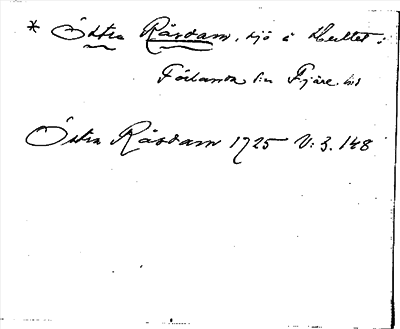 * Östra Råsdam, sjö å Hultet i
Förlanda sn Fjäre hd
Östra Råsdam 1725 V: 3. 148